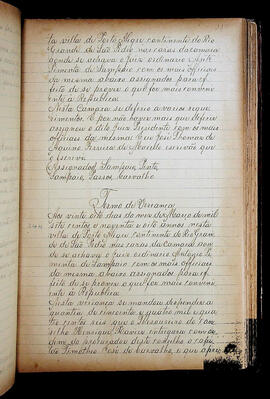 ta villa de Porto Alegre continente do Rio
Grande de São Pedro nas casas da camara
aonde se achava o Juiz ordinario Antº
Pimenta de Sampaio com os mais officiaes
da mesma abaixo assignados para ef
feito de se prover o que for mais conveni
ente à Republica
Nesta Camara se deferio a varios reque
rimentos. E por não haver mais que deferir
assignou o dito Juiz Presidente com os mais
officiaes da mesma. Eu José Thomaz de
Aquino Pereira de escrivão que
o escrevi
Assignados Sampaio, Pinto,
Sampaio, Passos, Carvalho
Termo de Vereança
Aos vinte e oito dias do mez de Março de mil
sete centos e noventa e oito annos nesta
villa de Porto Alegre Continente do Rio Gran
de de São Pedro nas casas da Camara aon
de se achava o Juiz ordinario Antonio Pi
menta de Sampaio com os mais officiaes
da mesma abaixo assignados para ef
feito de se prover o que for mais conveni
ente à Republica
Nesta vereança se mandou despender a
quantia de cincoenta e quatro mil e qua
tro centos reis que o Thesoureiro do Con
selho Henrique Xavier entregara
do procurador deste conselho o capi
tão Timotheo José de Carvalho e que